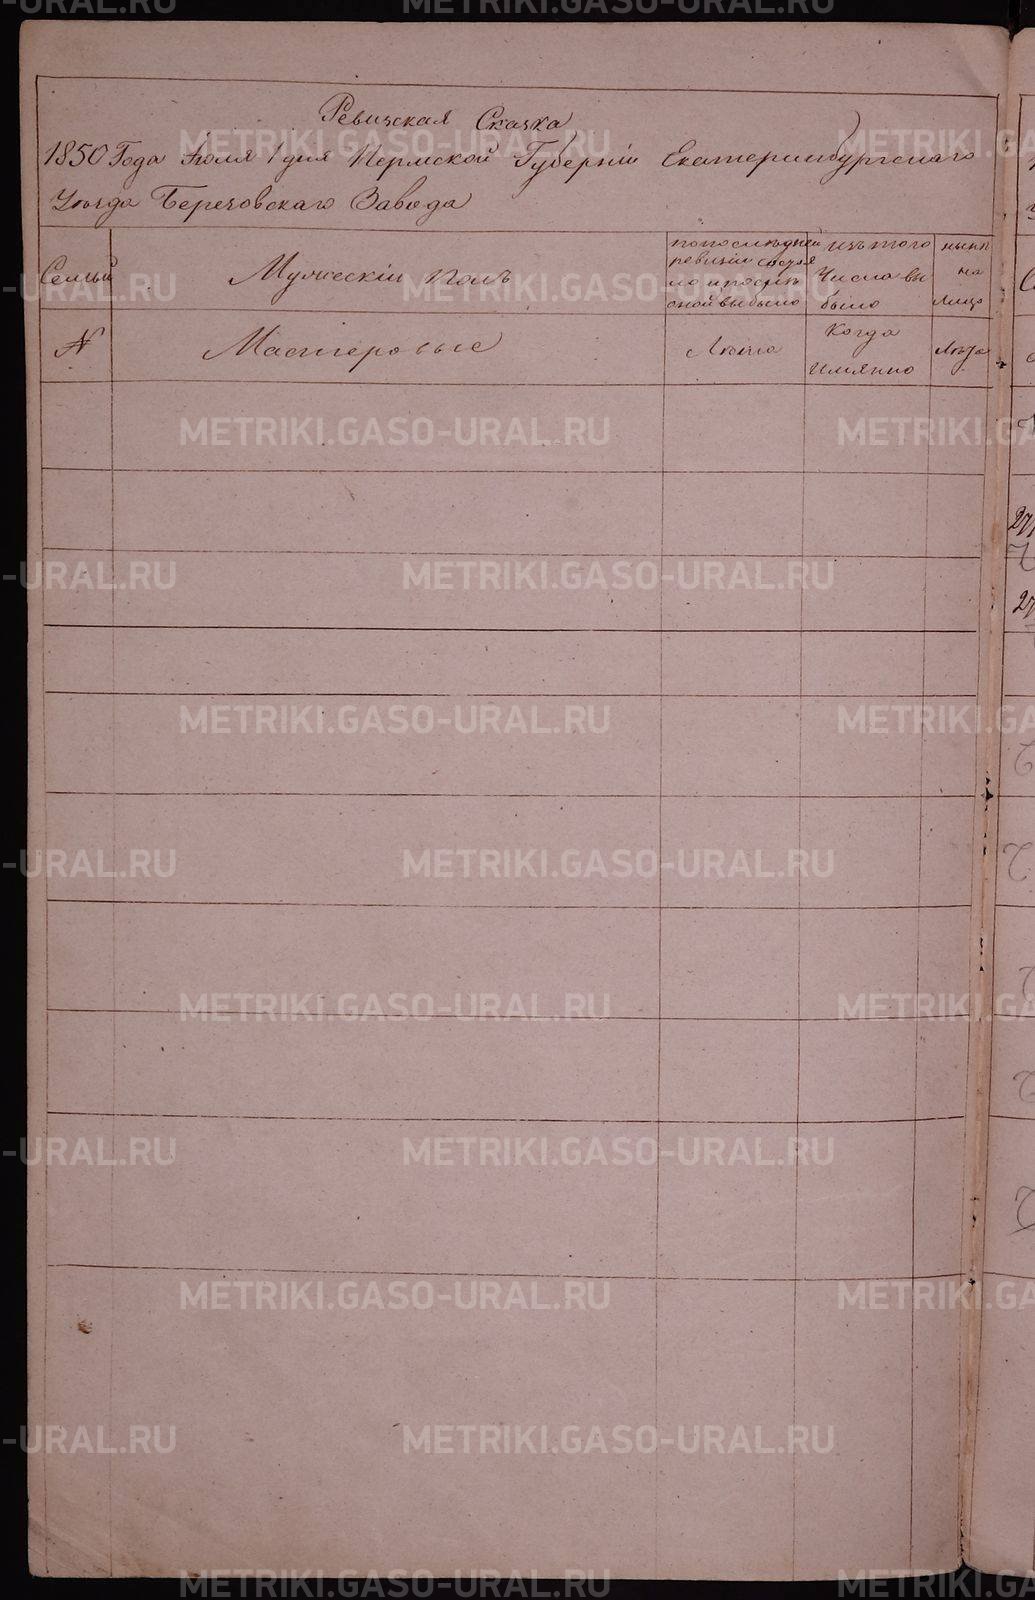 Ревизская Сказка
1850 Года Июля 1 дня Пермской Губерніи Екатеринбургскаго
Уѣзда Березовскаго Завода
Семьи
Мужескій полъ
по последней
ревизіи состоя
ло и после
оной выбыло
изъ того
Числа вы
было
нынѣ
на
лицо
N
Мастеровые
Лѣта
Когда
имянно
Лѣта
METRIKI.GASO-URAL.RU